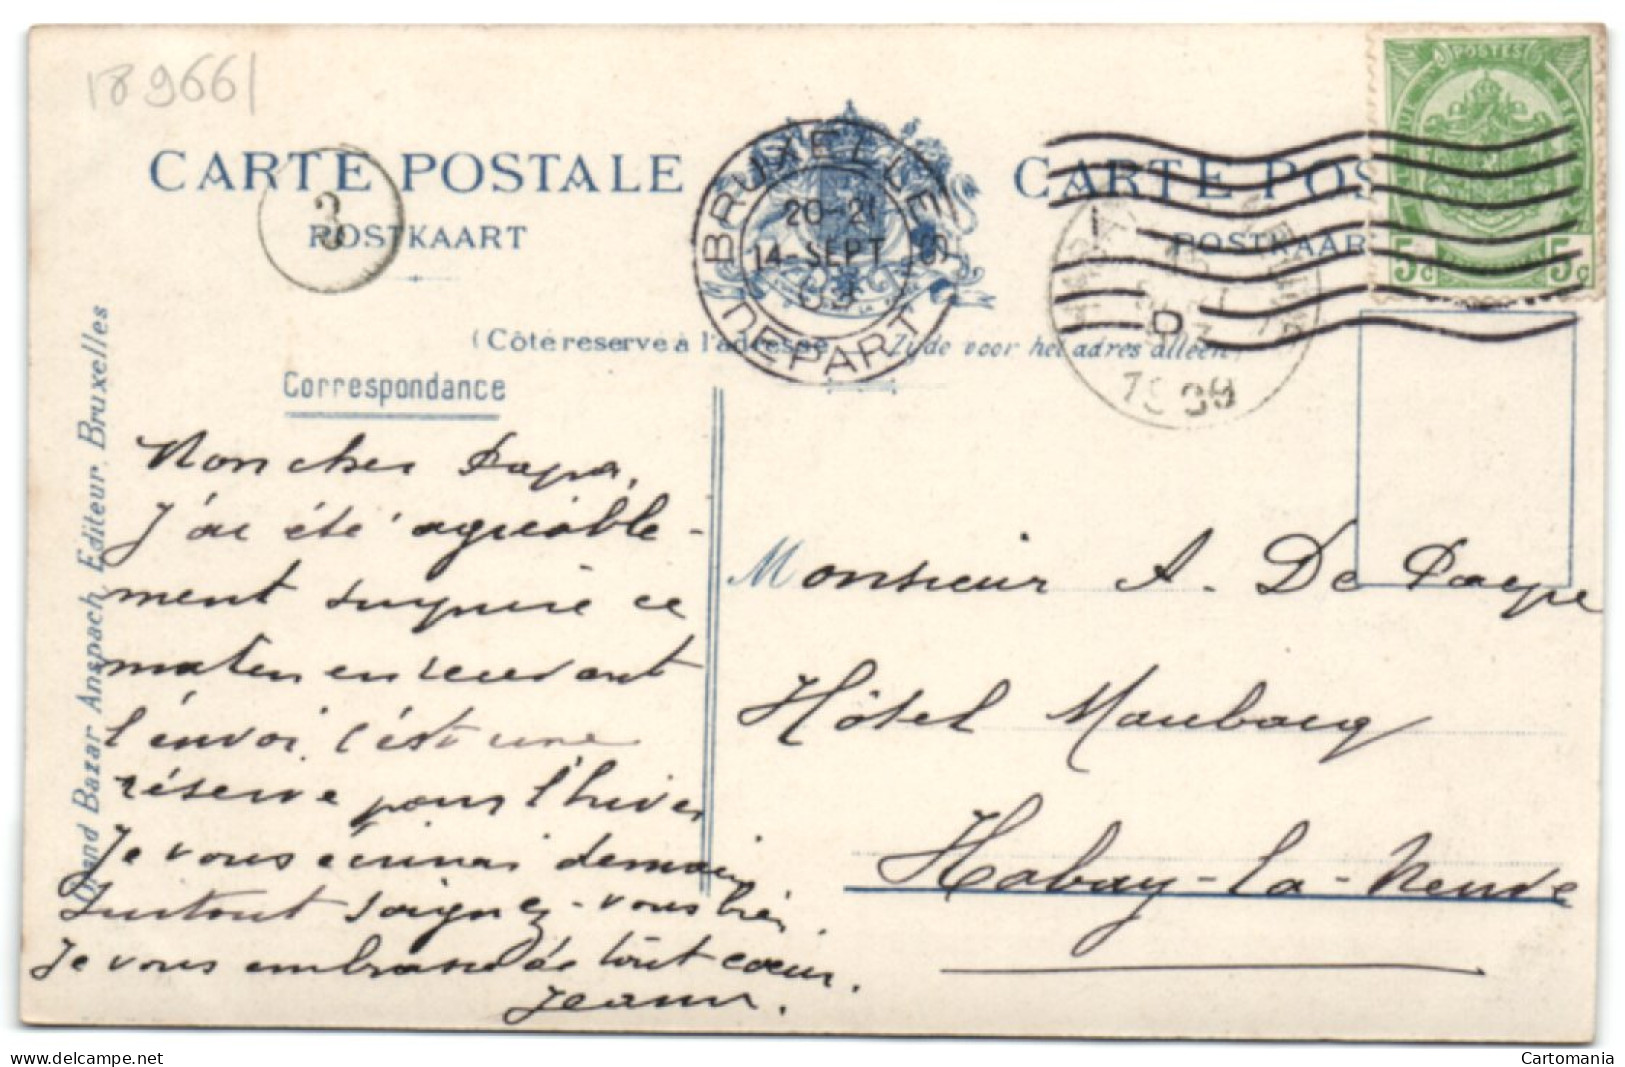 189661
CARTE POSTALE
POSTKAART
3
BRUXELLES
20-21
14-SEPT
DEPART
CARTE POS
POSTKAAR
POSTES
5c 5c
(Côté réservé à l'adresse Zijde voor het adres alleen)
Correspondance
Grand Bazar Anspach, Editeur, Bruxelles
Mon cher Papa,
J'ai été agréable-
ment surprise ce
matin en recevant
l'envoi, c'est une
réserve pour l'hiver
Je vous écrirai demain
Surtout soignez-vous bien
Je vous embrasse de tout cœur.
Jeanne.
Monsieur A. De Paepe
Hôtel Maubacq
Habay-la-Neuve
delcampe.net
Cartomania